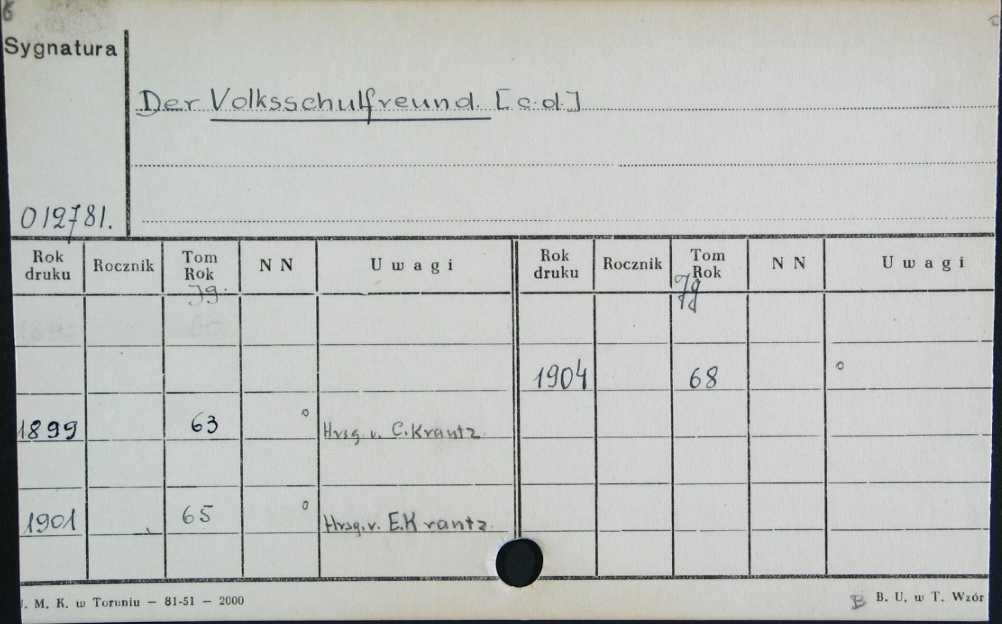 6
Sygnatura
Der Volksschulfreund. [c.d.]
012781.
Rok druku Rocznik Tom Rok NN Uwagi Rok druku Rocznik Tom Rok NN Uwagi
Jg. Jg
1904 68 o
1899 63 o Hrsg. v. C. Krantz
1901 65 o Hrsg. v. E. Krantz
. M. K. w Toruniu — 81-51 — 2000
B B. U. w T. Wzór